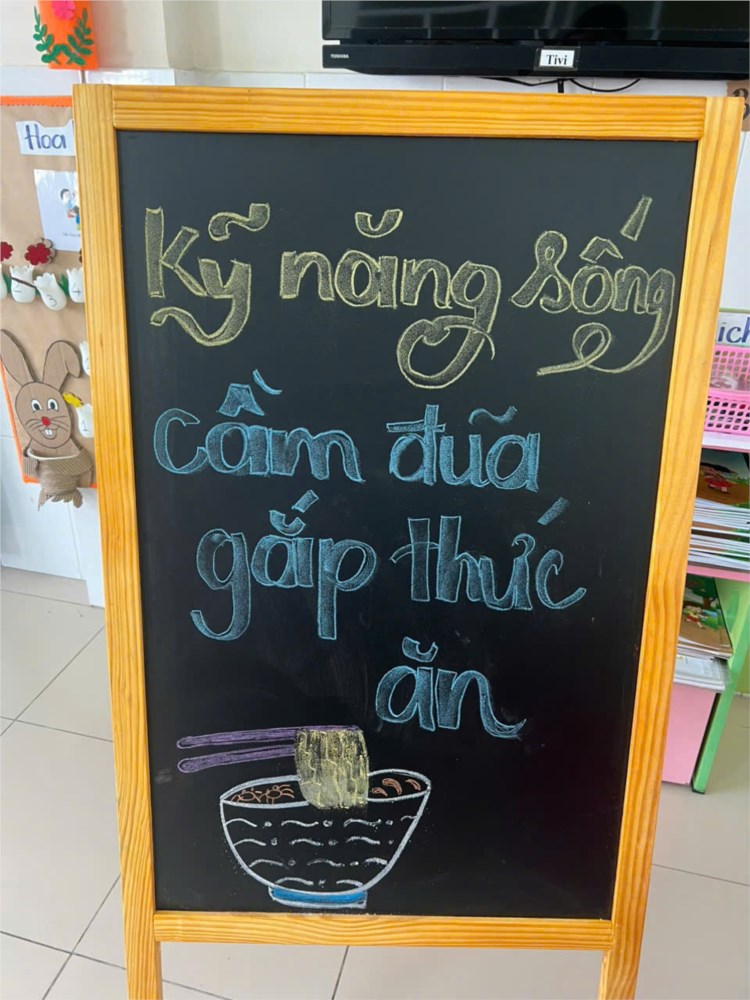 TOSHIBA
Tivi
Hoa
Kỹ năng sống
cầm đũa
gắp thức
ăn